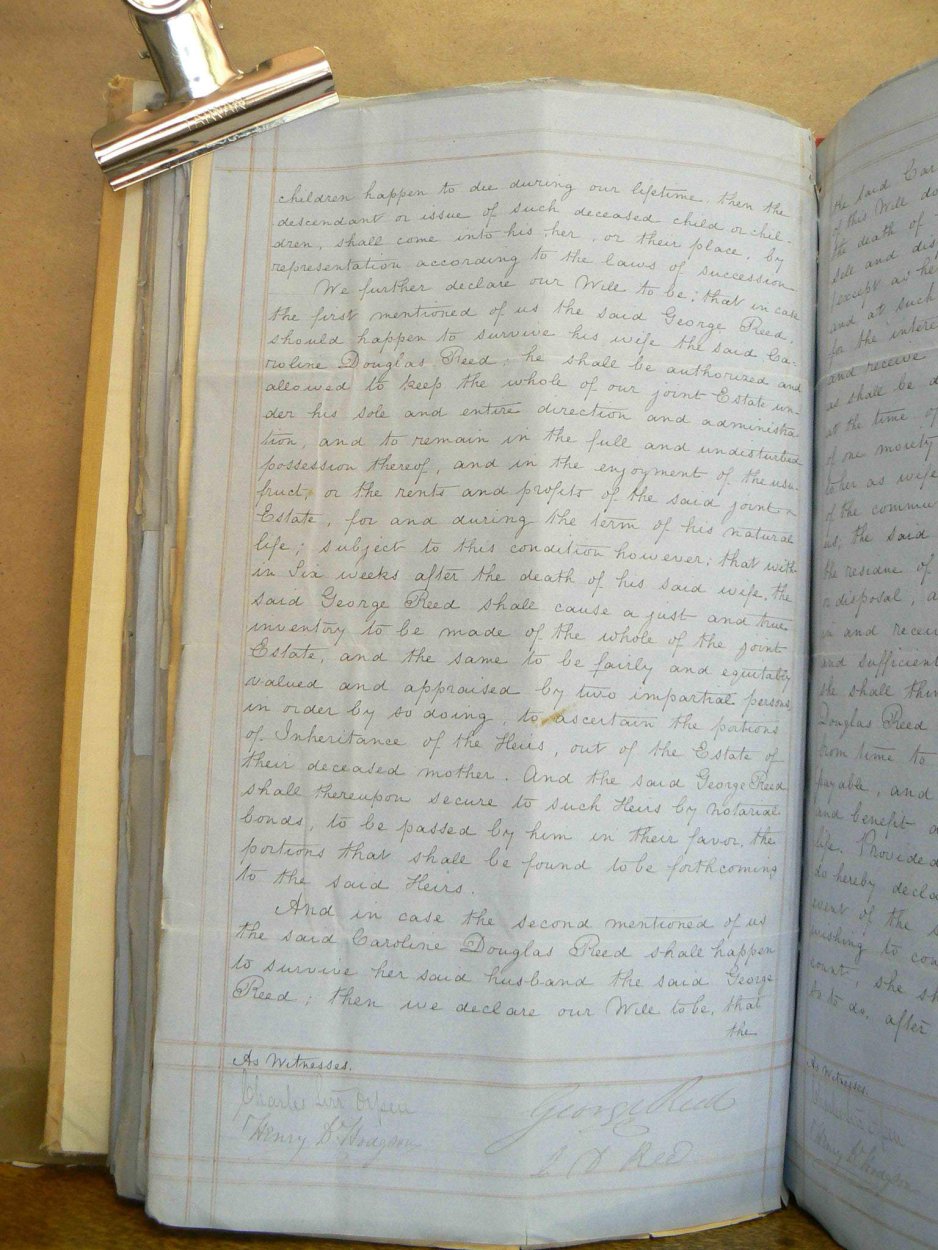 children happen to die during our lifetime, then the
descendant or issue of such deceased child or chil-
dren, shall come into his, her, or their place, by
representation according to the laws of succession
We further declare our Will to be; that in case
the first mentioned of us the said George Reed,
should happen to survive his wife the said Ca-
roline Douglas Reed; he shall be authorized and
allowed to keep the whole of our joint Estate un-
der his sole and entire direction and administra-
tion, and to remain in the full and undisturbed
possession thereof, and in the enjoyment of the usu-
fruct, or the rents and profits of the said joint
Estate, for and during the term of his natural
life; subject to this condition however; that with
in Six weeks after the death of his said wife, the
said George Reed shall cause a just and true
inventory to be made of the whole of the joint
Estate, and the same to be fairly and equitably
valued and appraised by two impartial persons,
in order by so doing, to ascertain the portions
of Inheritance of the Heirs, out of the Estate of
their deceased mother. And the said George Reed
shall thereupon secure to such Heirs by notarial
bonds, to be passed by him in their favor, the
portions that shall be found to be forthcoming
to the said Heirs.
And in case the second mentioned of us
the said Caroline Douglas Reed shall happen
to survive her said husband the said George
Reed; then we declare our Will to be, that
the
As Witnesses.
Charles Orpen
Henry Hodgson
George Reed
C D Reed
the said Car
of this Will do
the death of
sell and dis
except as he
and at such
for the intere
and receive
as shall be d
at the time of
of one moiety
to her as wife
of the commu
us, the said
the residue of
disposal, a
in and recei
and sufficient
she shall thin
Douglas Reed
from time to
payable, and
and benefit
life. Provided
do hereby decla
event of the s
wishing to con
count, she sh
to do, after
As Witnesses.
Henry Hodgson